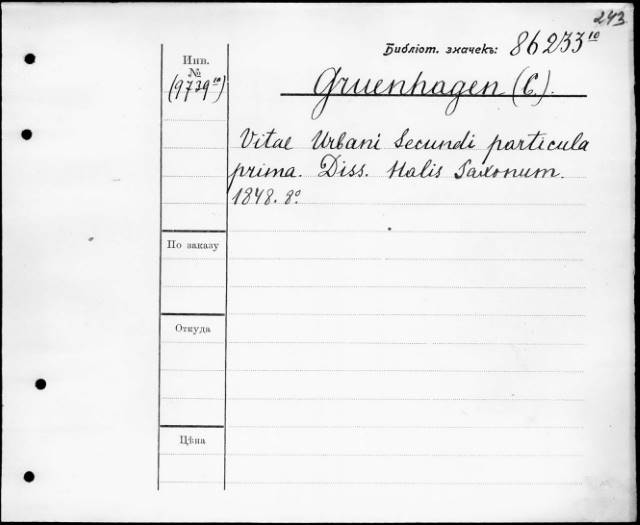 243
Библіот. значекъ: 86233¹⁰
Инв.
№
(9739¹⁰)
Gruenhagen (C.).
Vitae Urbani Secundi particula
prima. Diss. Halis Saxonum.
1848. 8°
По заказу
Откуда
Цѣна